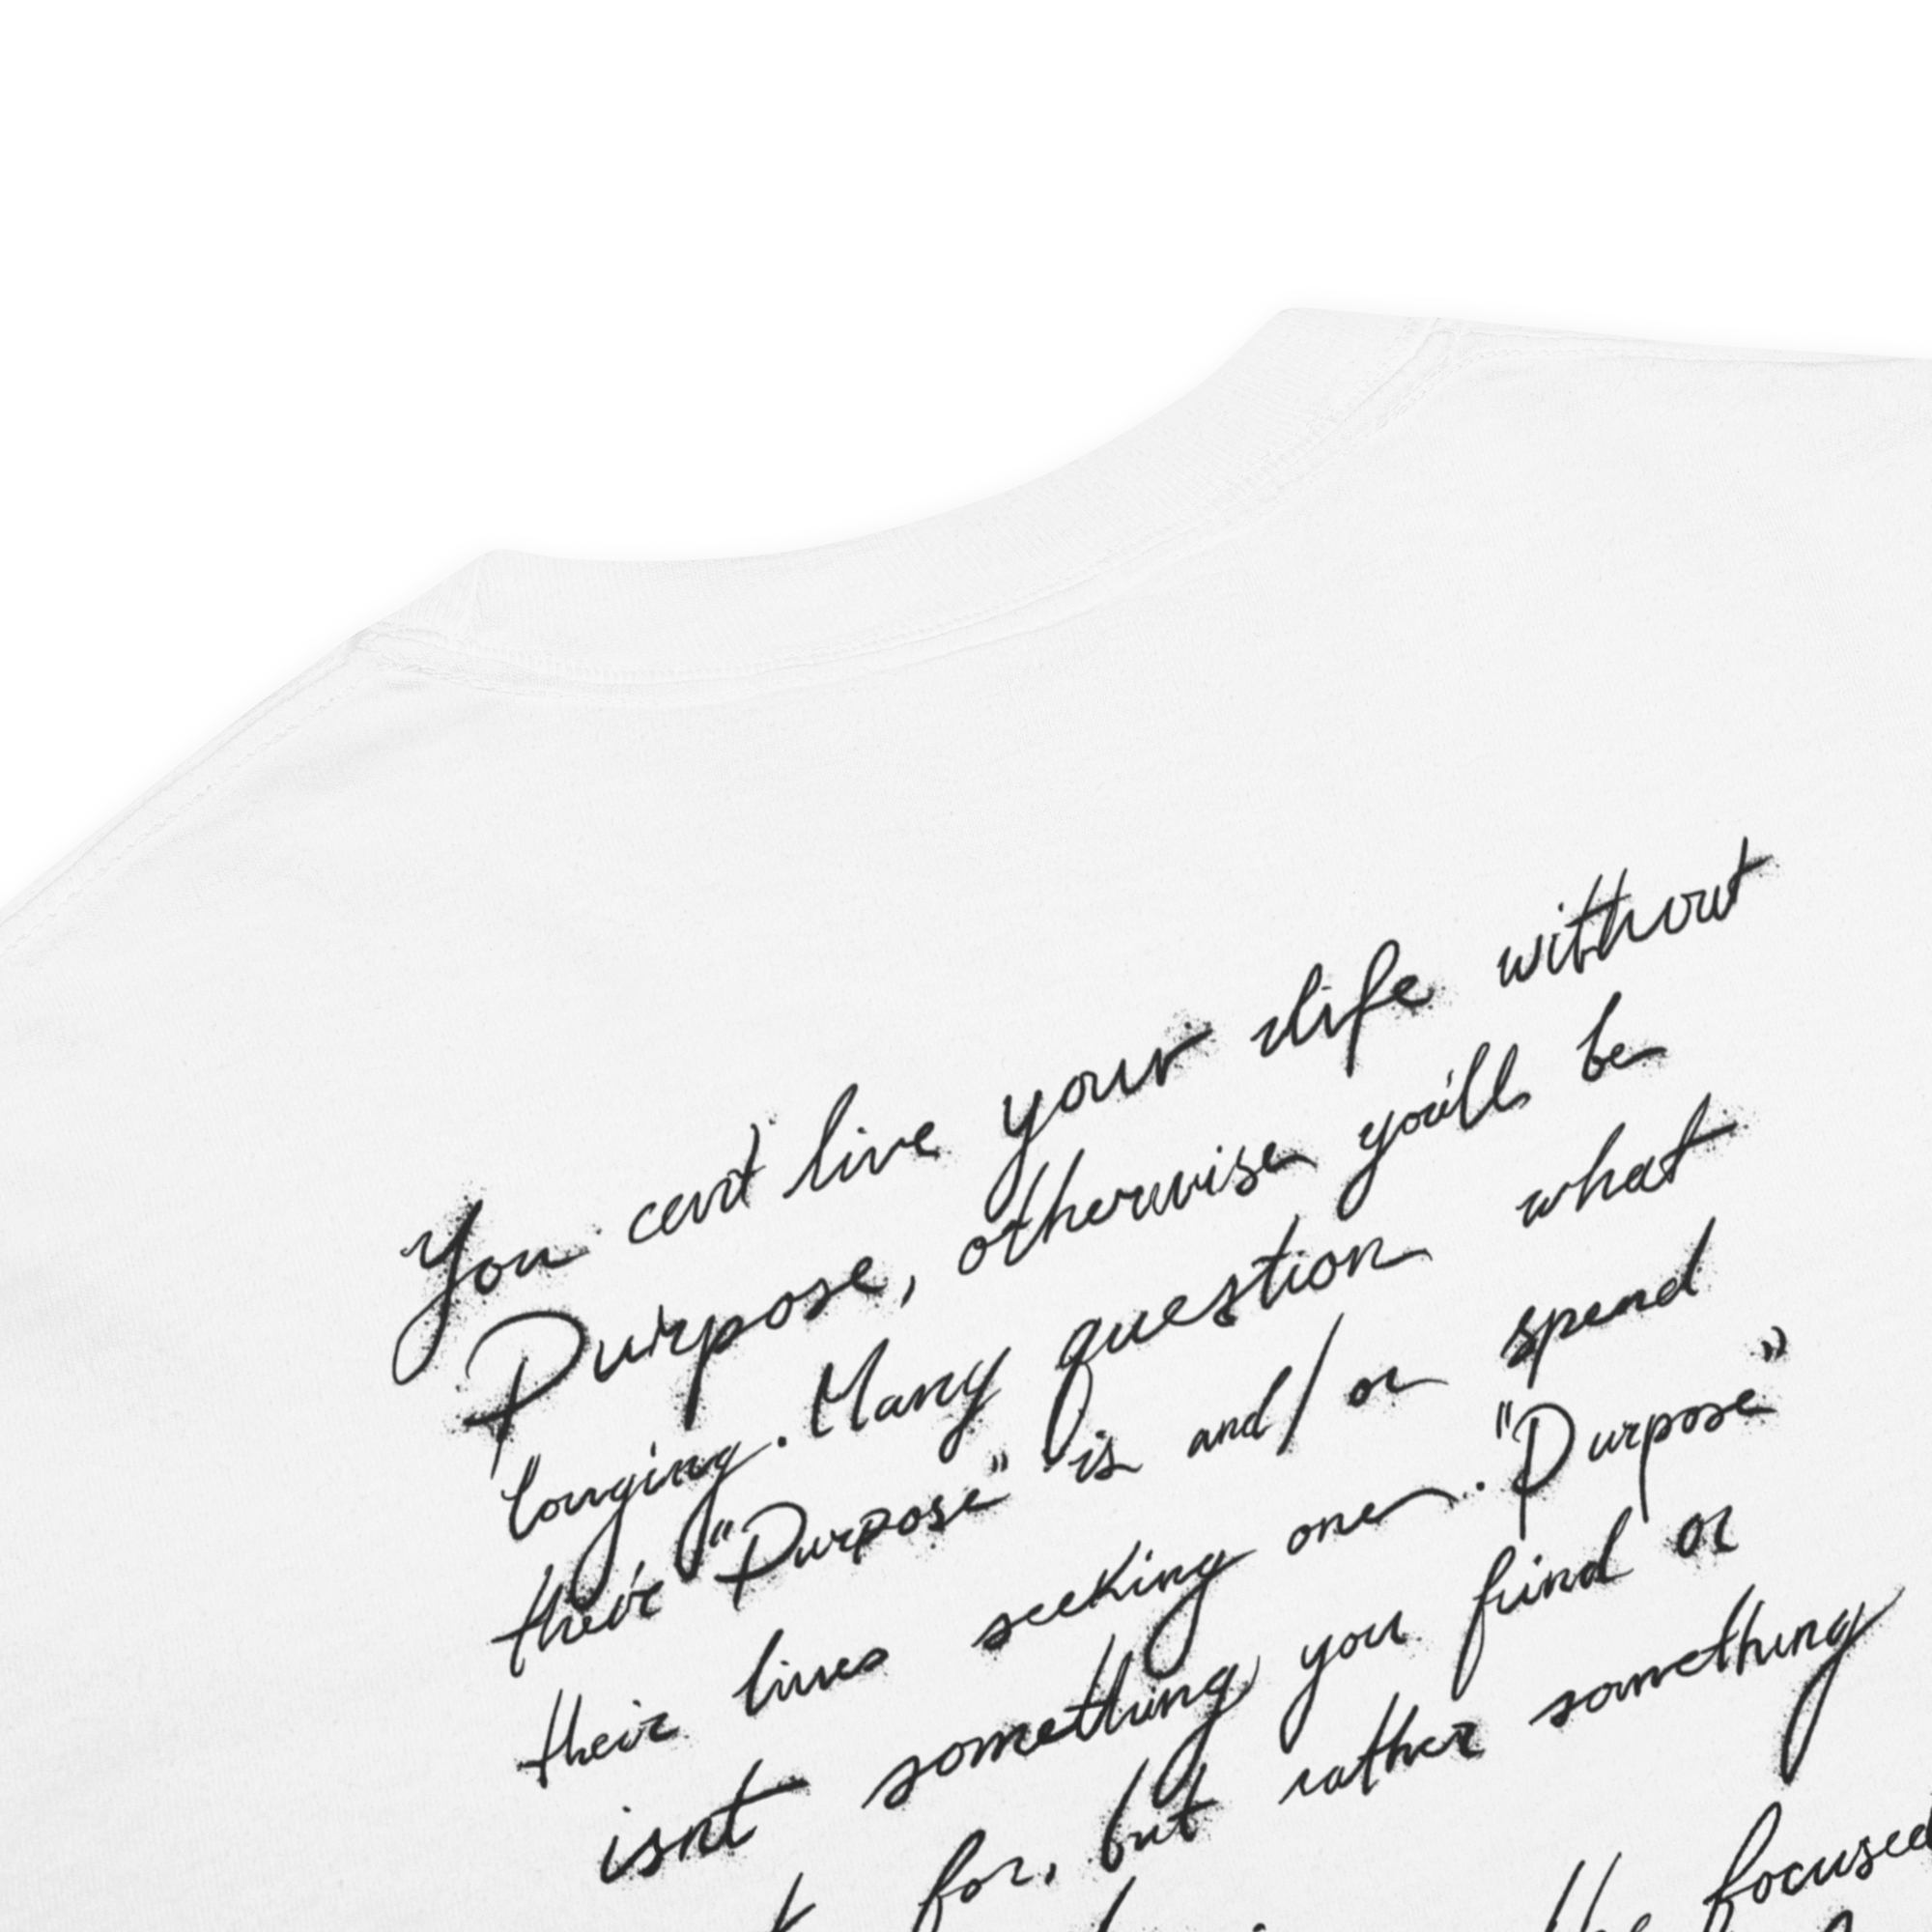 You can't live your life without
Purpose, otherwise you'll be
longing. Many question what
their "Purpose" is and/or spend
their lives seeking one. "Purpose"
isnt something you find or
for, but rather something
focused